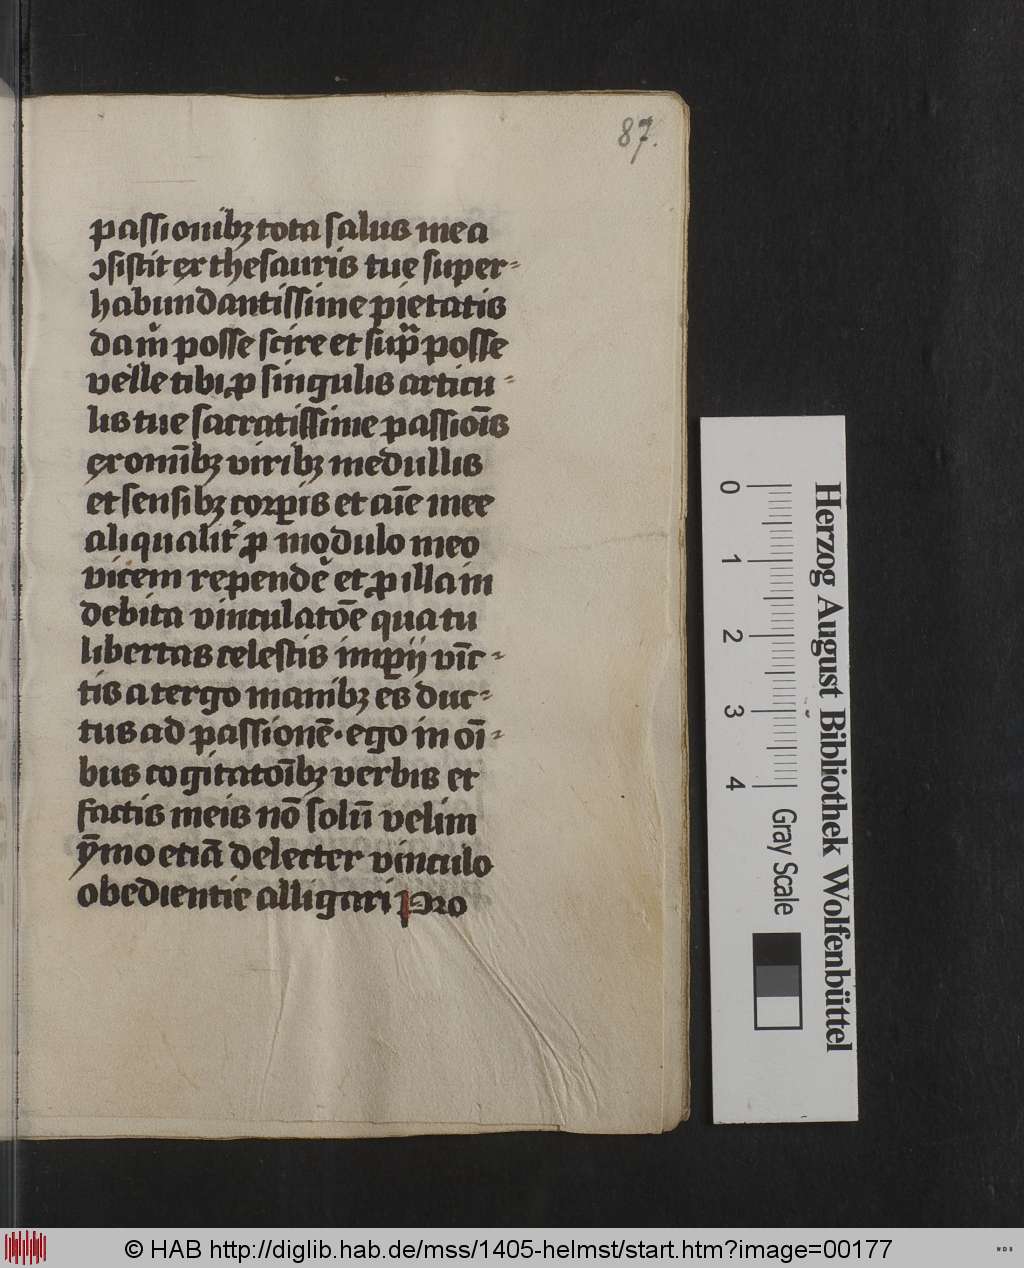 87.
passionibꝫ tota salus mea
ↄsistit ex thesauris tue super-
habundantissime pietatis
da m̉ posse scire et sup̃ posse
velle tibi ꝓ singulis articu-
lis tue sacratissime passiōis
ex om̄ibꝫ viribꝫ medullis
et sensibꝫ corꝑis et aīe mee
aliqualit᷑ ꝓ modulo meo
vicem repende᷑ et ꝓ illa in
debita vinculatōe qua tu
libertas celestis imꝑij vīc-
tis a tergo manibꝫ es duc-
tus ad passionē · ego in oī-
bus cogitatoībꝫ verbis et
factis meis nō solū velim
ȳmo etiā delecter vinculo
obedientie alligari Pro
0 1 2 3 4
Gray Scale
Herzog August Bibliothek Wolfenbüttel
© HAB http://diglib.hab.de/mss/1405-helmst/start.htm?image=00177